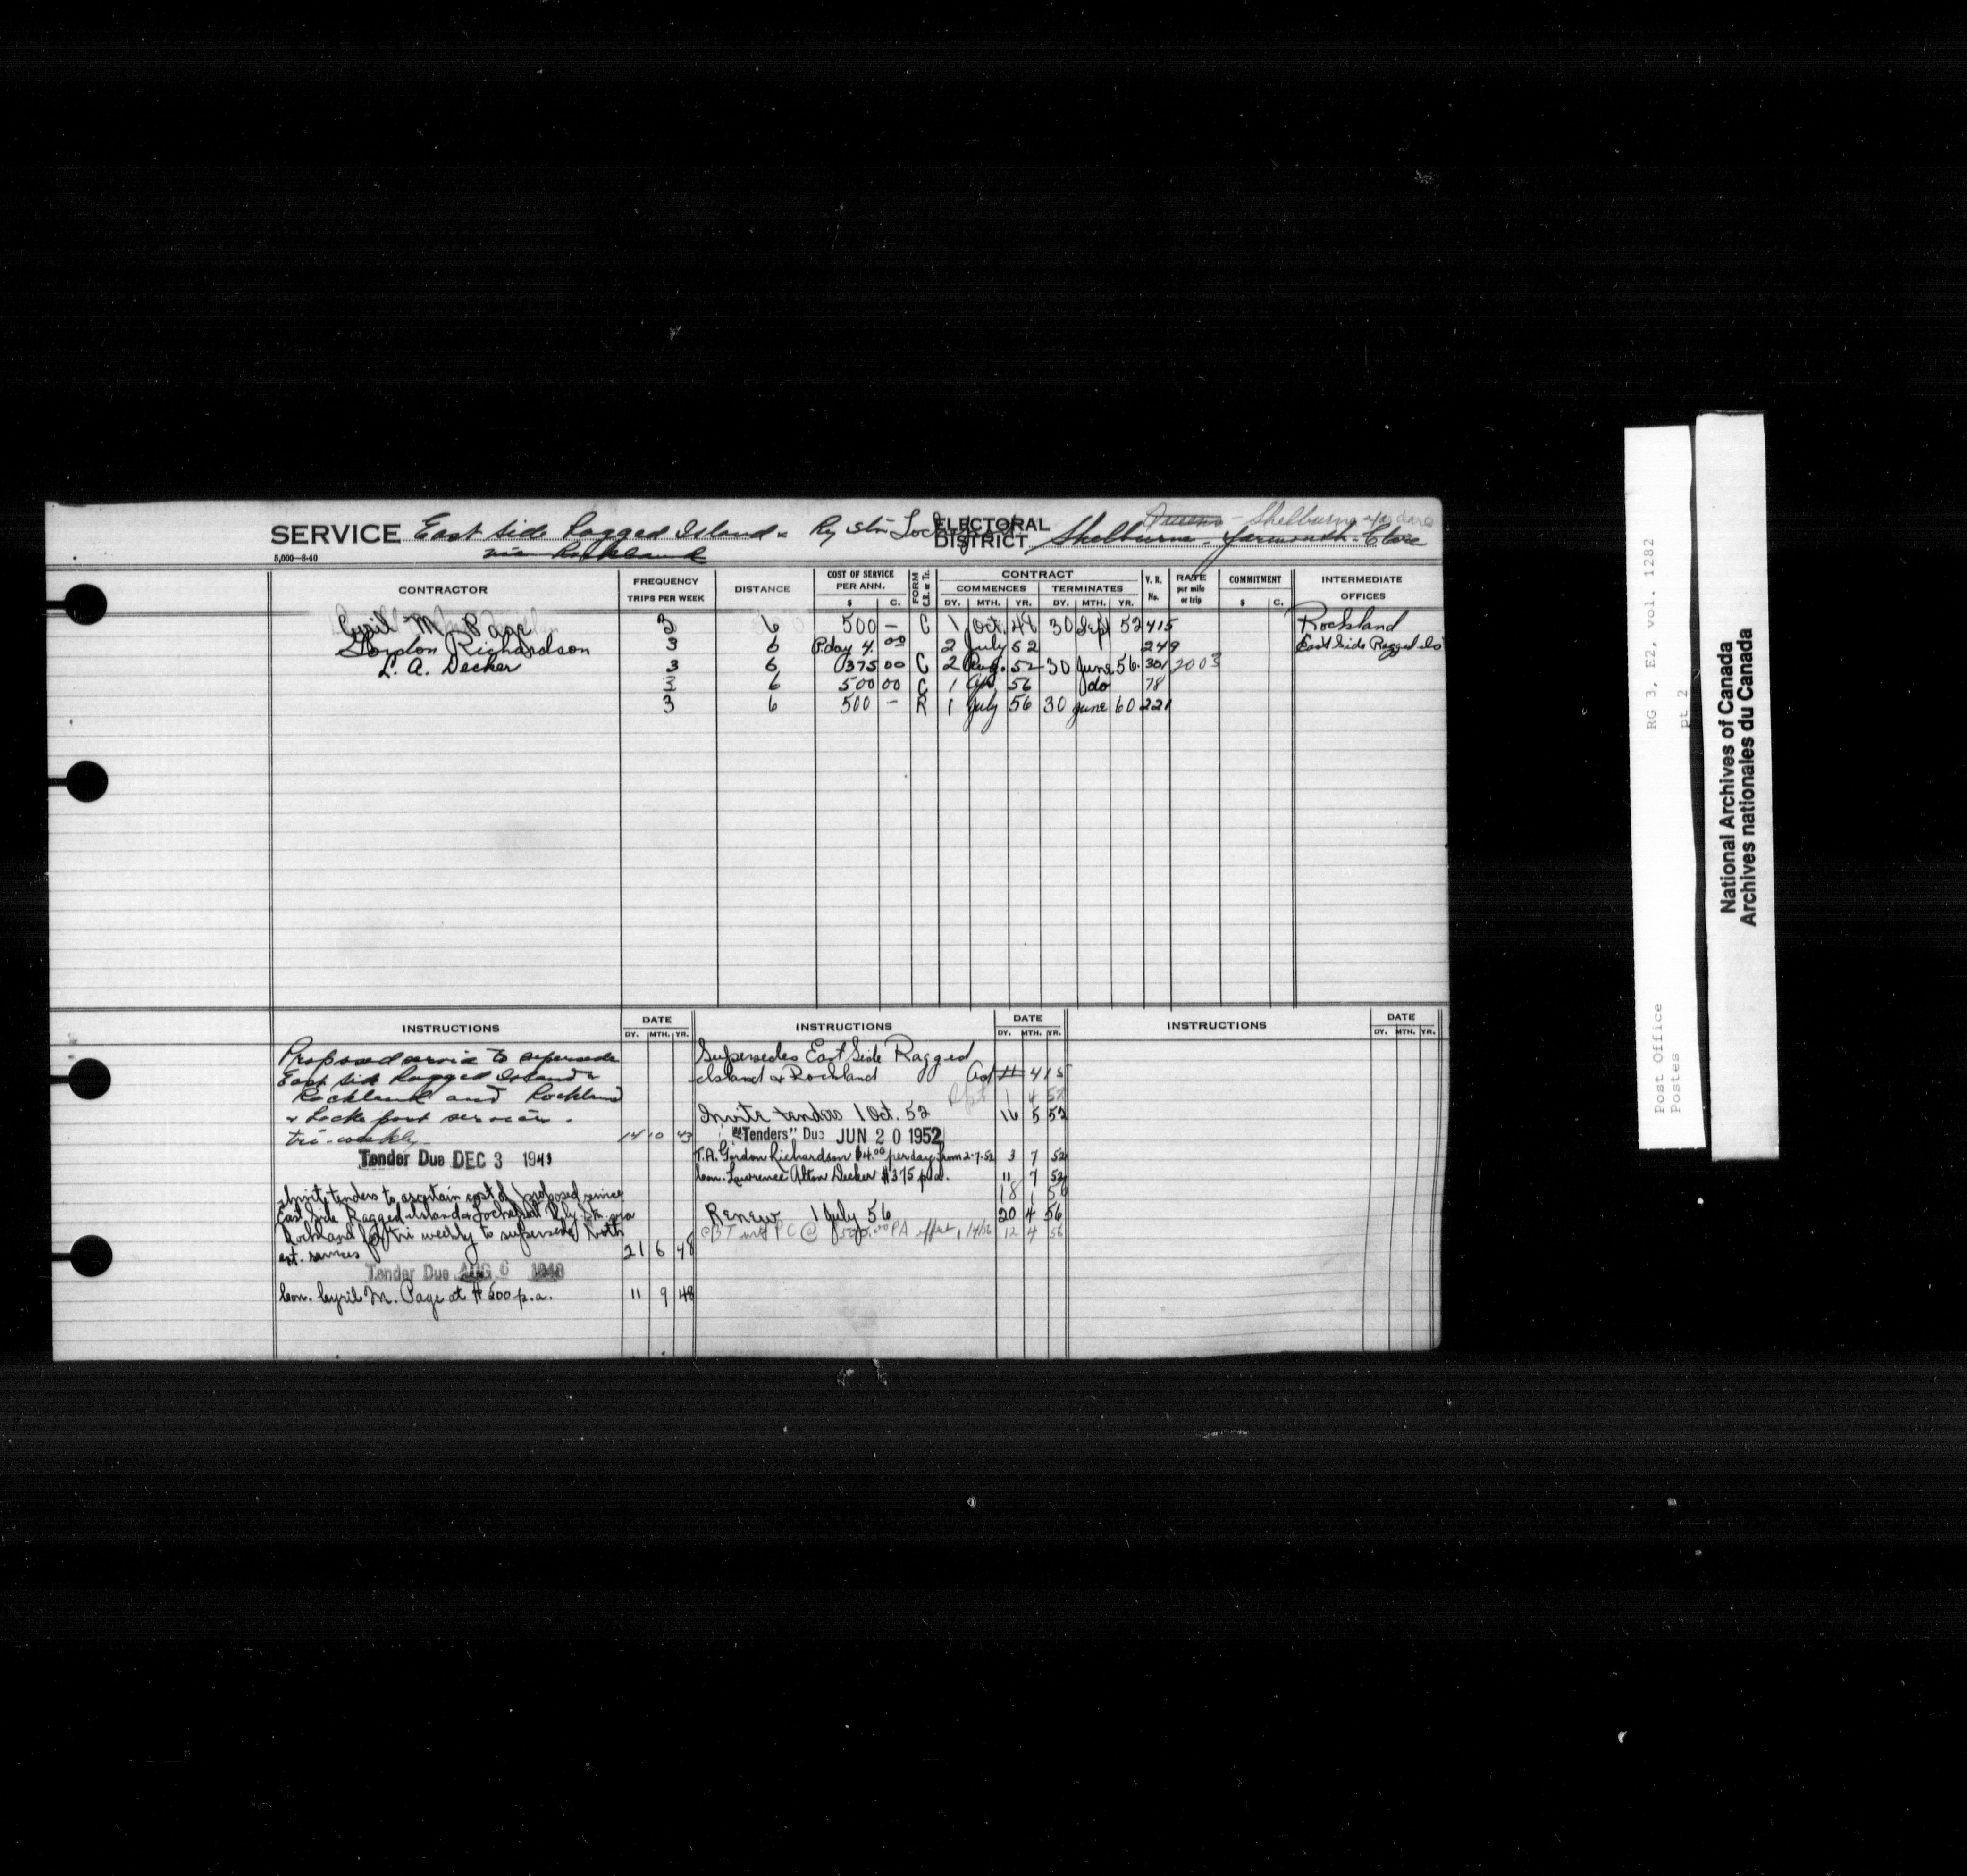 SERVICE East Side Ragged Island & Ry Stn Lockeport
via Rockland
5,000—8-40
ELECTORAL DISTRICT Shelburne - Yarmouth - Clare
Queens - Shelburne
CONTRACTOR
FREQUENCY TRIPS PER WEEK
DISTANCE
COST OF SERVICE PER ANN.
$ C.
FORM C.R. or Tr.
CONTRACT
COMMENCES TERMINATES
DY. MTH. YR. DY. MTH. YR.
V. R. No.
RATE per mile or trip
COMMITMENT
$ C.
INTERMEDIATE OFFICES
Cyril M. Page 3 6 500 — C 1 Oct. 48 30 Sept 52 415 Rockland
Gordon Richardson 3 6 P.day 4.00 2 July 52 249 East Side Ragged Is
L. A. Decker 3 6 375 00 C 2 Aug. 52 30 June 56 301 2003
3 6 500 00 C 1 Ap 56 do 78
3 6 500 — R 1 July 56 30 June 60 221
INSTRUCTIONS
DATE
DY. MTH. YR.
Proposed service to supersede
East Side Ragged Island &
Rockland and Rockland
& Lockeport services.
tri-weekly 14 10 43
Tender Due DEC 3 194
Invite tenders to ascertain cost of proposed service
East Side Ragged Island & Lockeport Rly. Stn. via
Rockland tri weekly to supersede both
ext. services 21 6 48
Tender Due AUG 6 1948
Con. Cyril M. Page at $500 p.a. 11 9 48
INSTRUCTIONS
DATE
DY. MTH. YR.
Supersedes East Side Ragged
Island & Rockland
Rpt 1 4 52
Invite tenders 1 Oct. 52 16 5 52
"Tenders" Due JUN 20 1952
T.A. Gordon Richardson $4.00 per day from 2-7-52 3 7 52
Con. Lawrence Alton Decker $375 p.a. 11 7 52
18 1 56
Renew 1 July 56 20 4 56
PC @ 500.00 PA effect. 1/4/56 12 4 56
INSTRUCTIONS
DATE
DY. MTH. YR.
Post Office RG 3, E2, vol. 1282
Postes pt 2
National Archives of Canada
Archives nationales du Canada